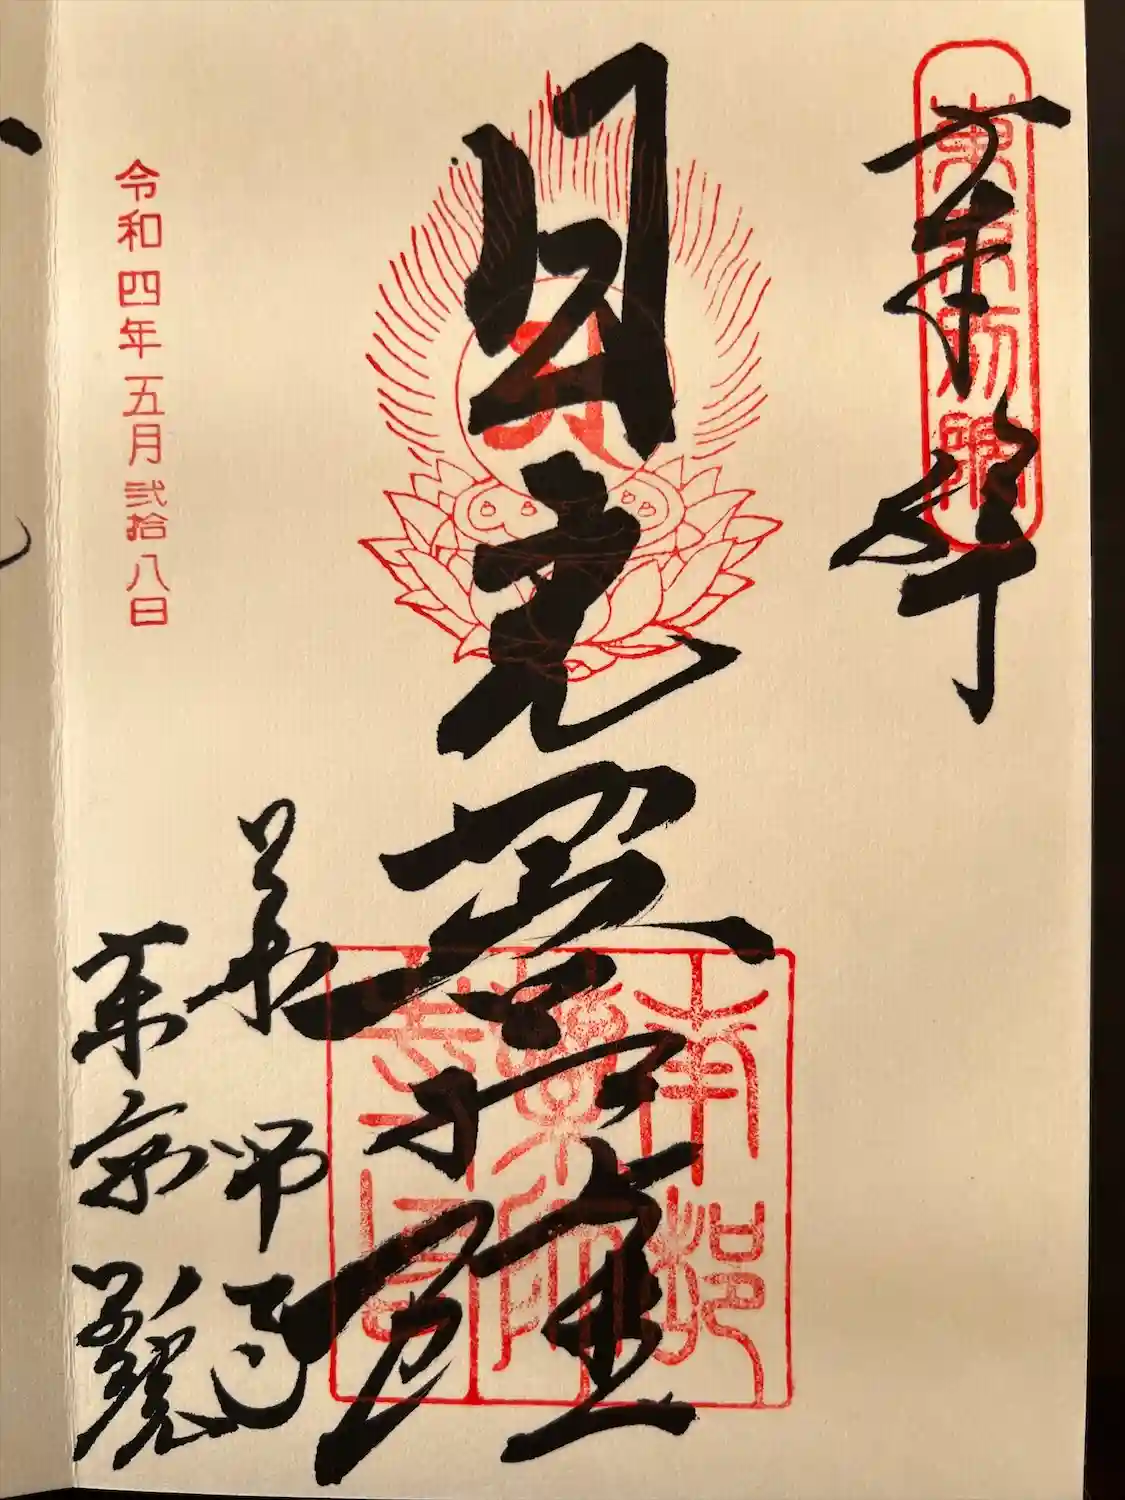 奉拝
東京別院
日光菩薩
南都
薬師
薬師寺
東京別院
令和四年五月弐拾八日